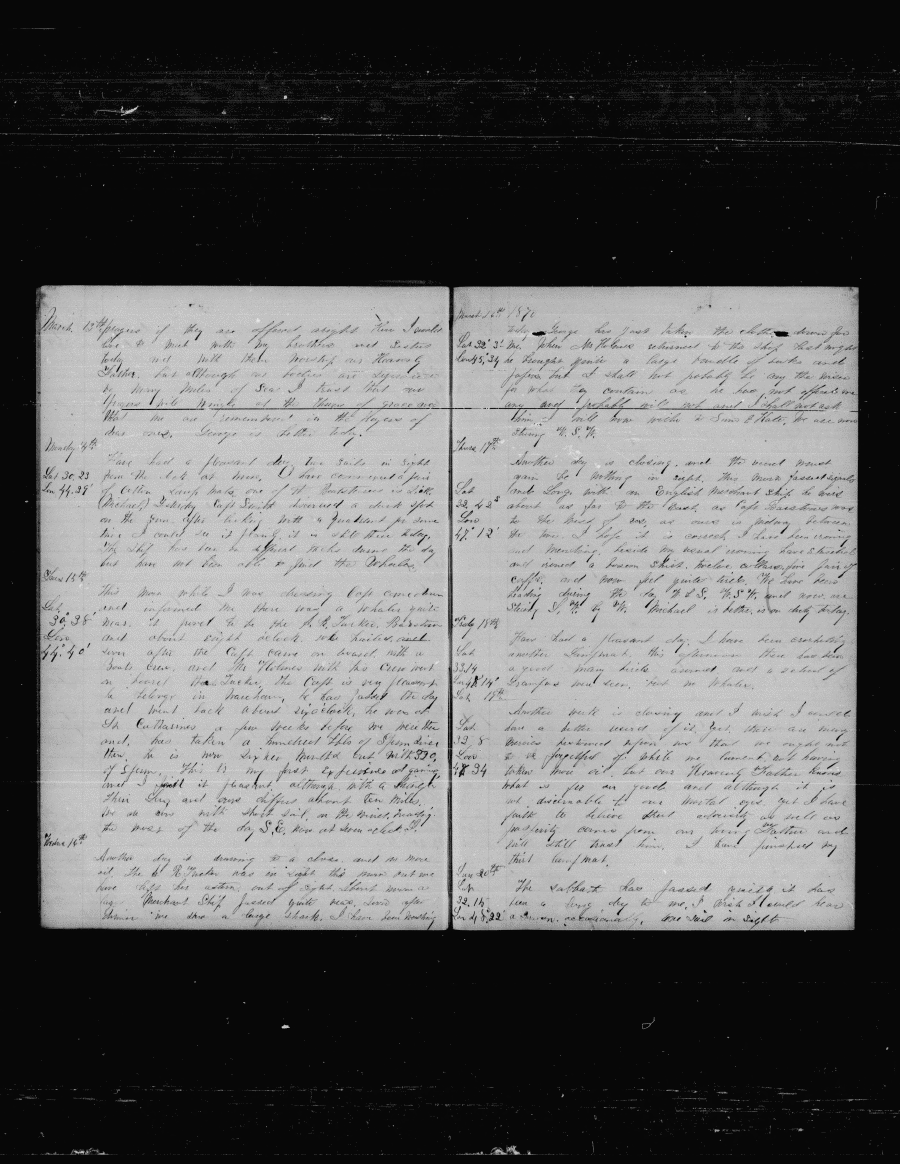 March 13th prayers if they are offered aright. How I would
love to meet with my brothers and Sisters
today and with them worship our Heavenly
Father, but although our bodies are separated
by many miles of Sea I trust that our
prayers will mingle at the throne of grace and
that we are remembered in the prayers of
dear ones. George is better today.
Monday 14th
Have had a pleasant day, two sails in sight
Lat 30,23 from the deck at noon, I have commenced a pair
Lon 44.39' of Cotton Lamp Mats, one of the is sick
(Michael) Yesterday Capt Smith a speck spot
on the Sun. After looking with a Quadrant for some
time I could see it plainly, it is still there today.
The Ship has been on different tacks during the day
but have not been able to find the Whales
Tues 15th
This morn while I was dressing Capt came down
Lat and informed me there was a Whaler quite
30° 38' near. It proved to be the A. R. Tucker, Ricketson
Lon and about eight oclock was hailed, and
44°. 40' soon after the Capt came on board with a
Boats Crew, and Mr Holmes with his Crew went
on board the Tucker, the Capt is very pleasant
he belongs in Wareham, he has passed the day
and went back about six oclock, he was at
St Catharines a few weeks before we were there
and, has taken a hundred bbls of Sperm since
then. he is now sixteen months out with 330,
of Sperm. This is my first experience at gaming
and I find it pleasant, although with a stranger
their Long and ours differs about ten miles,
we are now with short sail, on the wind, heading
the most of the day S. E. now at seven oclock S.
Weds 16th
Another day is drawing to a close, and no more
oil. The A R Tucker was in sight this morn but we
have left her astern, out of sight. About noon a
large Merchant Ship passed quite near, soon after
dinner we saw a large shark, I have been washing
March 16th 1870
today George has just taken in the clothes down for
Lat 32° 3' me, when Mr Holmes returned to the ship last night
Lon 45°, 34 he brought quite a large bundle of books and
papers but it shall not probably be any the wiser
for what they contain as he has not offered me
any and probably will not and I shall not ask
him. will now write to Sons & Kate, We are now
Thurs 17th
Another day is closing, and the usual word
again be nothing in sight. This morn passed signals
Lat and Longs with an English Merchant Ship he was
33. 42 about as far to the East, as Capt Ricketsons was
Lon to the West of our, as ours is midway between
47° 12' the two. I hope it is correct. I have been ironing
and mending, beside my usual ironing have starched
and ironed a bosom Shirt, twelve collars, five pair of
cuffs, and now feel quite tired. We have been
heading during the day W & S. W.S W. and now, are
Michael is better, is on duty today.
Friday 18th
Have had a pleasant day. I have been crocheting
Lat another Lampmat. this afternoon there has been
33.14 a good many birds around and a school of
Grampus were seen, but no Whales.
Sat 19th
Another week is closing and I wish I could
Lat have a better record of it, Yet, there are many
33, 8 mercies bestowed upon us that we ought not
Lon to be forgetful of while we lament not having
47 34 taken more oil, but our Heavenly Father knows
what is for our good and although it is
not discernable to our mortal eyes, yet I have
faith to believe that adversity as well as
prosperity comes from our loving Father and
will still trust him. I have finished my
third lampmat.
Sun 20th
Lat The sabbath has passed quietly it has
32, 14' been a long day to me, I wish I could hear
Lon 48°, 22' a sermon occasionally, one sail in sight